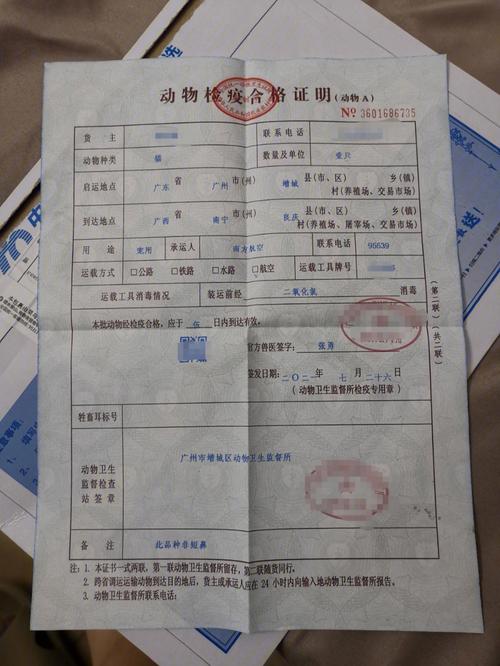 动物检疫合格证明(动物A)
No 3601686735
货主 联系电话
动物种类 猫 数量及单位 壹只
启运地点 广东 省 广州 市(州) 增城 县(市、区) 乡(镇)
村(养殖场、交易市场)
到达地点 广西 省 南宁 市(州) 良庆 县(市、区) 乡(镇)
村(养殖场、屠宰场、交易市场)
用途 宠用 承运人 南方航空 联系电话 95539
运载方式 □公路 □铁路 □水路 □航空 运载工具牌号
运载工具消毒情况 装运前经 二氧化氯 消毒
本批动物经检疫合格,应于 伍 日内到达有效。
官方兽医签字: 张勇
签发日期: 二〇二一年 七 月 二十六 日
(动物卫生监督所检疫专用章)
牲畜耳标号
动物卫生监督检查站签章
广州市增城区动物卫生监督所
备注 此品种非短鼻
注:1. 本证书一式两联,第一联动物卫生监督所留存,第二联随货同行。
2. 跨省调运动物到达目的地后,货主或承运人应在24小时内向输入地动物卫生监督所报告。
3. 动物卫生监督所联系电话:
(第二联)
(共二联)